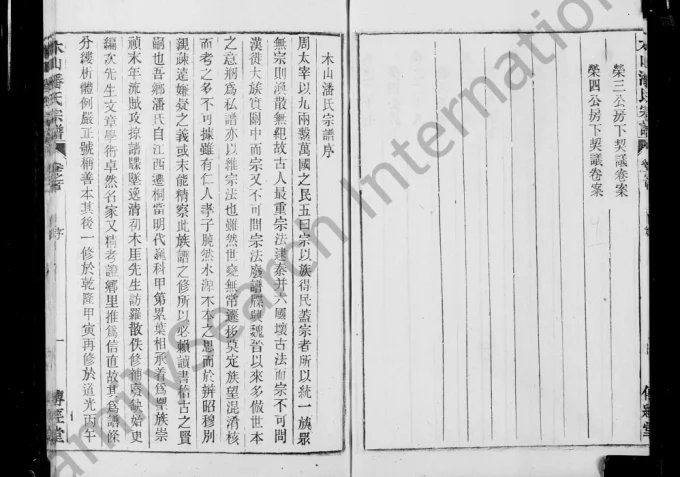 木山潘氏宗譜
榮三公房下契議卷案
榮四公房下契議卷案
木山潘氏宗譜序
周太宰以九兩繫萬國之民五曰宗以族得民蓋宗者所以統一族眾
無宗則渙散無紀故古人最重宗法逮秦并六國壞古法而宗不可問
漢徙大族實關中而宗又不可問宗法廢譜牒興魏晉以來多倣世本
之意州為私譜亦以維宗法也雖然世變無常遷移莫定族望混淆核
而考之多不可據雖有仁人孝子曉然水源木本之思而於辨昭穆別
親疎遠嫌疑之義或未能精察此族譜之修所以必賴讀書稽古之賢
嗣也吾鄉潘氏自江西遷桐當明代巍科甲第累葉相承着為望族崇
禎末年流賊攻掠譜牒墜逸清初木厓先生訪羅散佚修補殘缺始更
編次先生文章學術卓然名家又精考證鄉里推為信直故其為譜條
分縷析體例嚴正號稱善本其後一修於乾隆甲寅再修於道光丙午
木山潘氏宗譜
卷之首
序
一
傳經堂
FamilySearch International